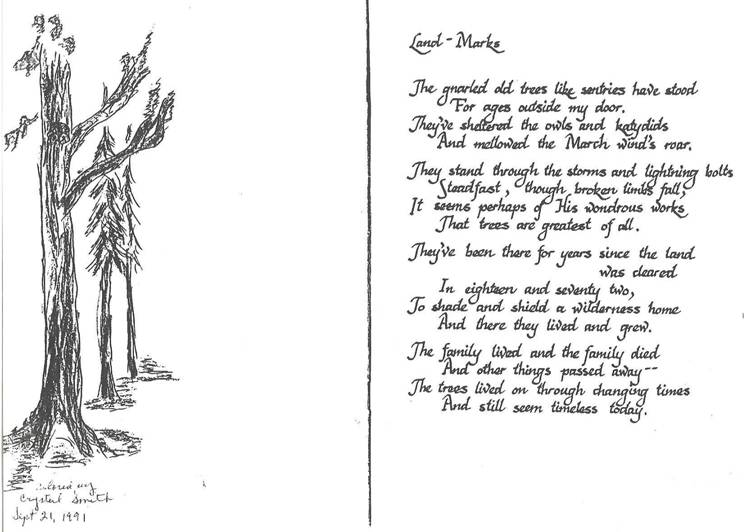 Land-Marks
The gnarled old trees like sentries have stood
For ages outside my door.
They've sheltered the owls and katydids
And mellowed the March wind's roar.
They stand through the storms and lightning bolts
Steadfast, though broken limbs fall;
It seems perhaps of His wondrous works
That trees are greatest of all.
They've been there for years since the land
was cleared
In eighteen and seventy two,
To shade and shield a wilderness home
And there they lived and grew.
The family lived and the family died
And other things passed away--
The trees lived on through changing times
And still seem timeless today.
Crystal Smith
Sept 21, 1991